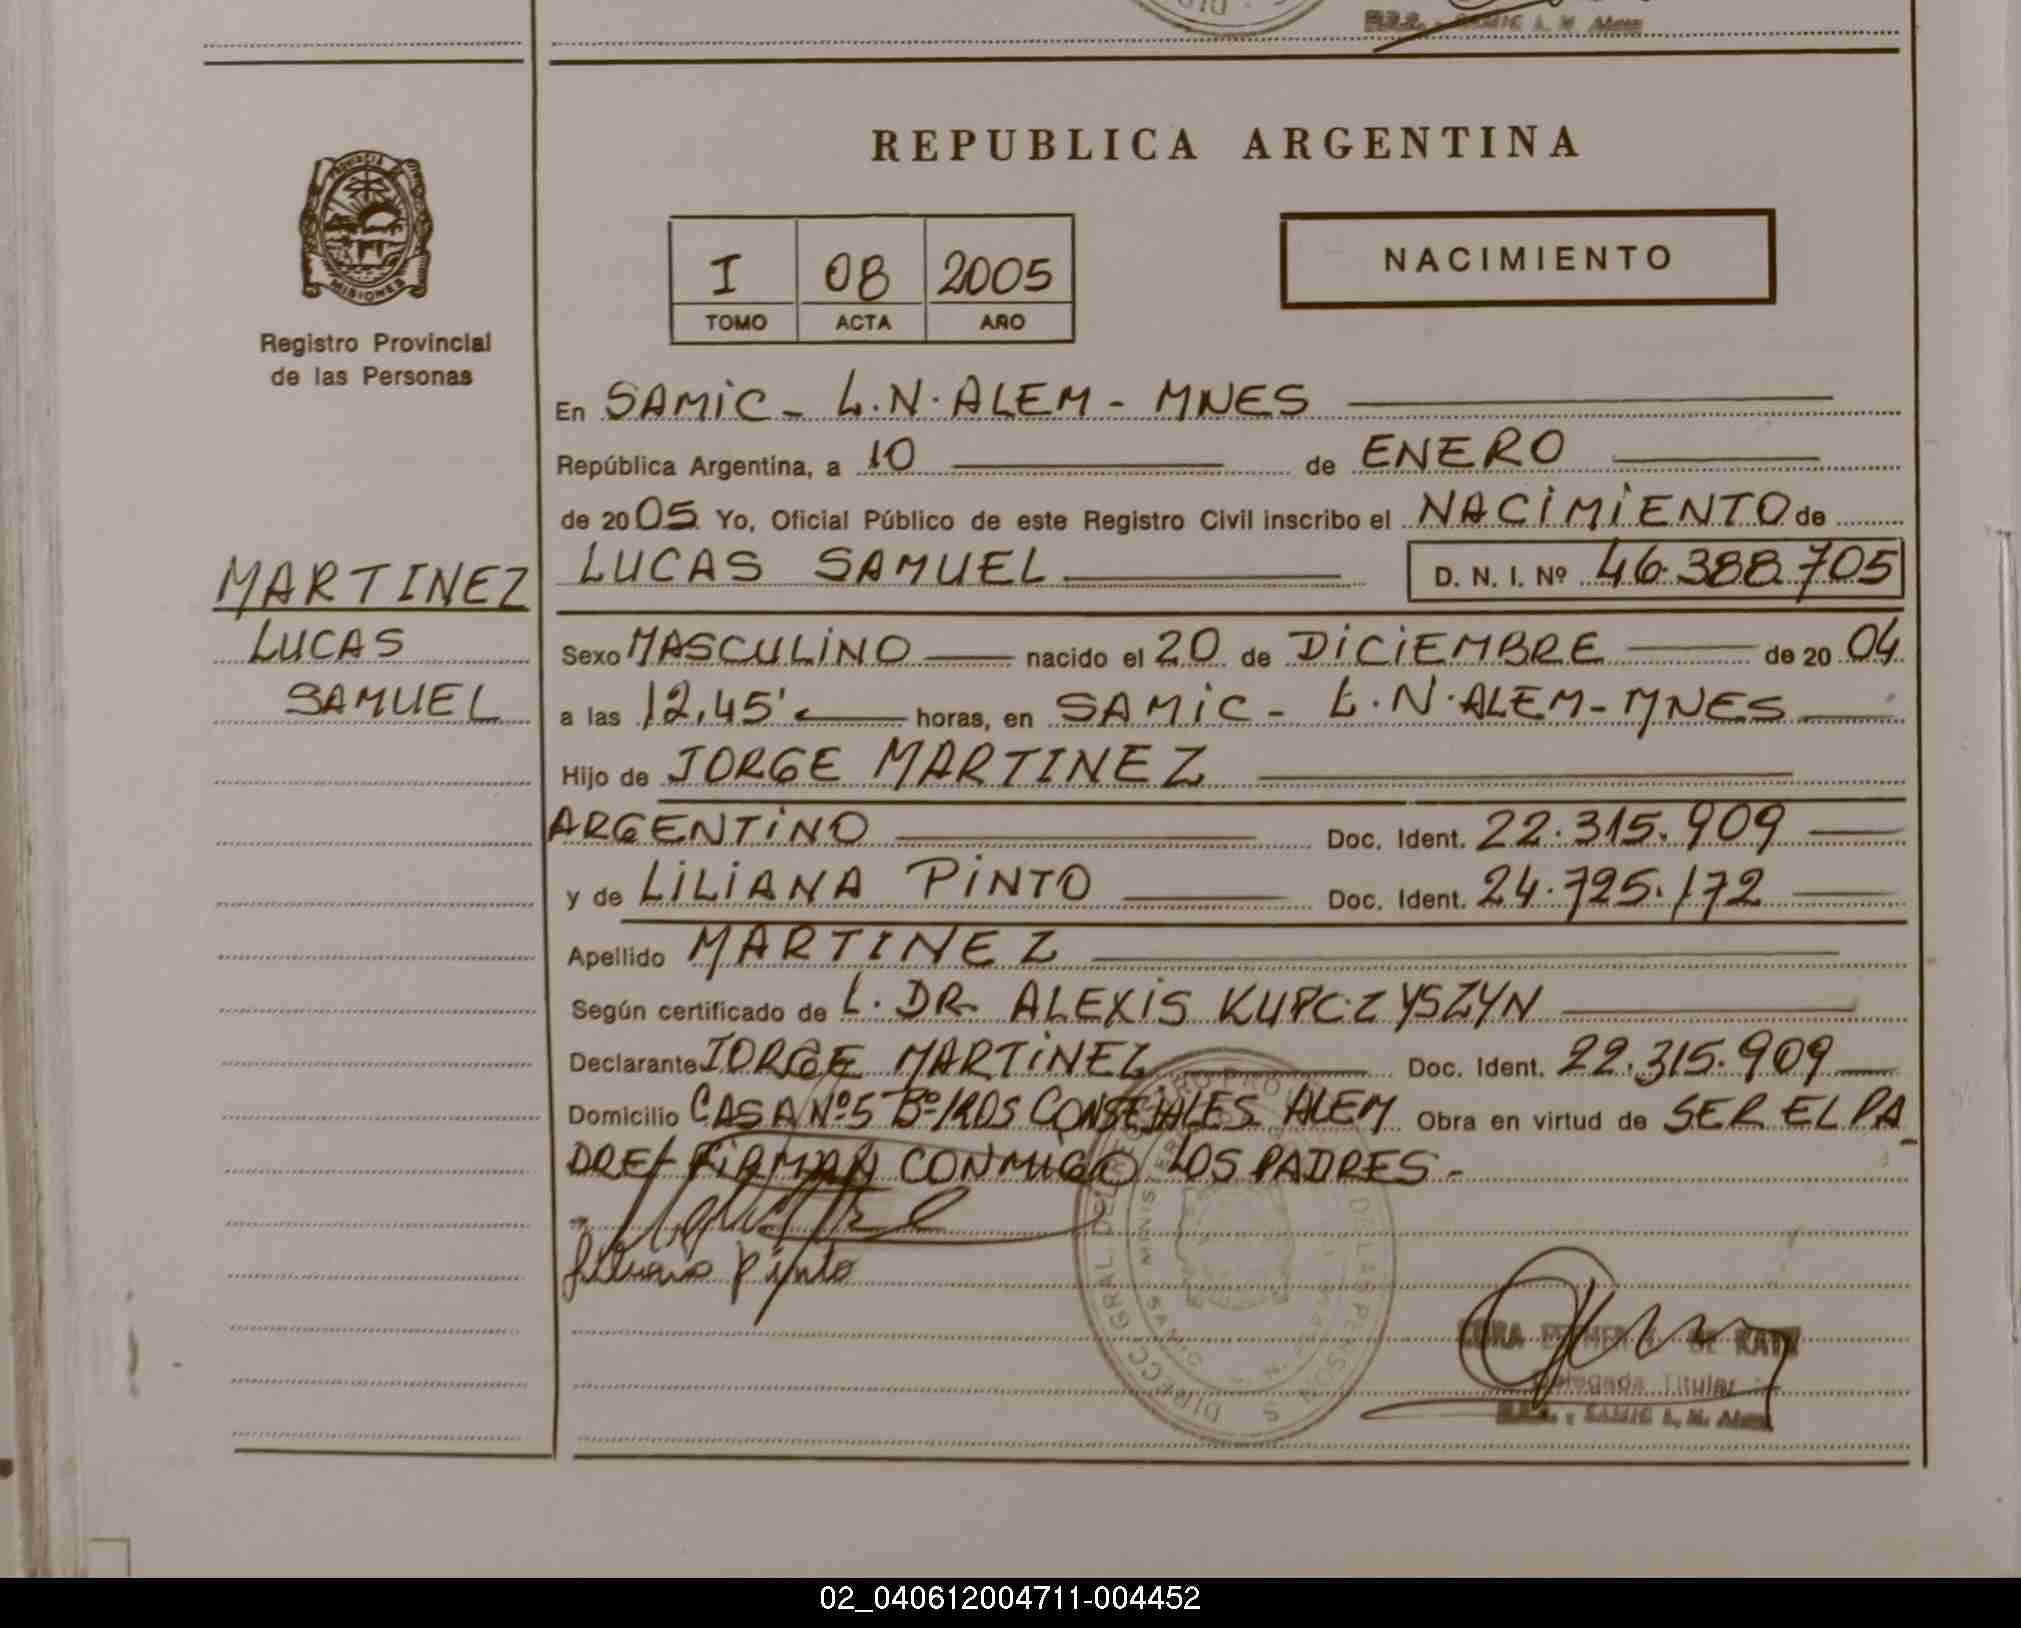 REPUBLICA ARGENTINA
PROVINCIA
MISIONES
Registro Provincial
de las Personas
I 08 2005
TOMO ACTA AÑO
NACIMIENTO
En SAMIC - L.N. ALEM - MNES
República Argentina, a 10 de ENERO
de 2005 Yo, Oficial Público de este Registro Civil inscribo el NACIMIENTO de
LUCAS SAMUEL D. N. I. Nº 46.388.705
MARTINEZ
LUCAS
SAMUEL
Sexo MASCULINO nacido el 20 de DICIEMBRE de 2004
a las 12,45' horas, en SAMIC - L.N. ALEM - MNES
Hijo de JORGE MARTINEZ
ARGENTINO Doc. Ident. 22.315.909
y de LILIANA PINTO Doc. Ident. 24.725.172
Apellido MARTINEZ
Según certificado de L. DR. ALEXIS KUPCZYSZYN
Declarante JORGE MARTINEZ Doc. Ident. 22.315.909
Domicilio CASA Nº5 Bº/ CONSEJALES ALEM Obra en virtud de SER EL PA
DRE/ FIRMAN CONMIGO LOS PADRES.-
Liliana Pinto
DE KATZ
Delegada Titular
SAMIC L. N. Alem
02_040612004711-004452